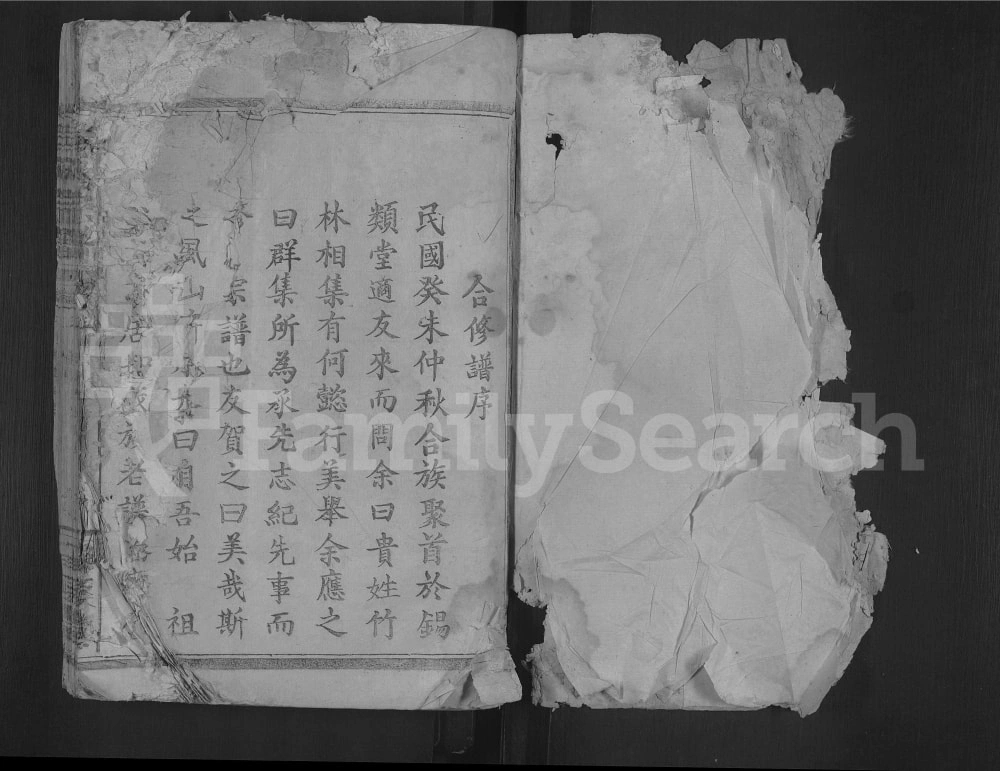 合修譜序
民國癸未仲秋合族聚首於錫
類堂適友來而問余曰貴姓竹
林相集有何懿行美舉余應之
曰群集所為承先志紀先事而
宗譜也友賀之曰美哉斯
之風山 曰自吾始 祖
居 族老譜
FamilySearch